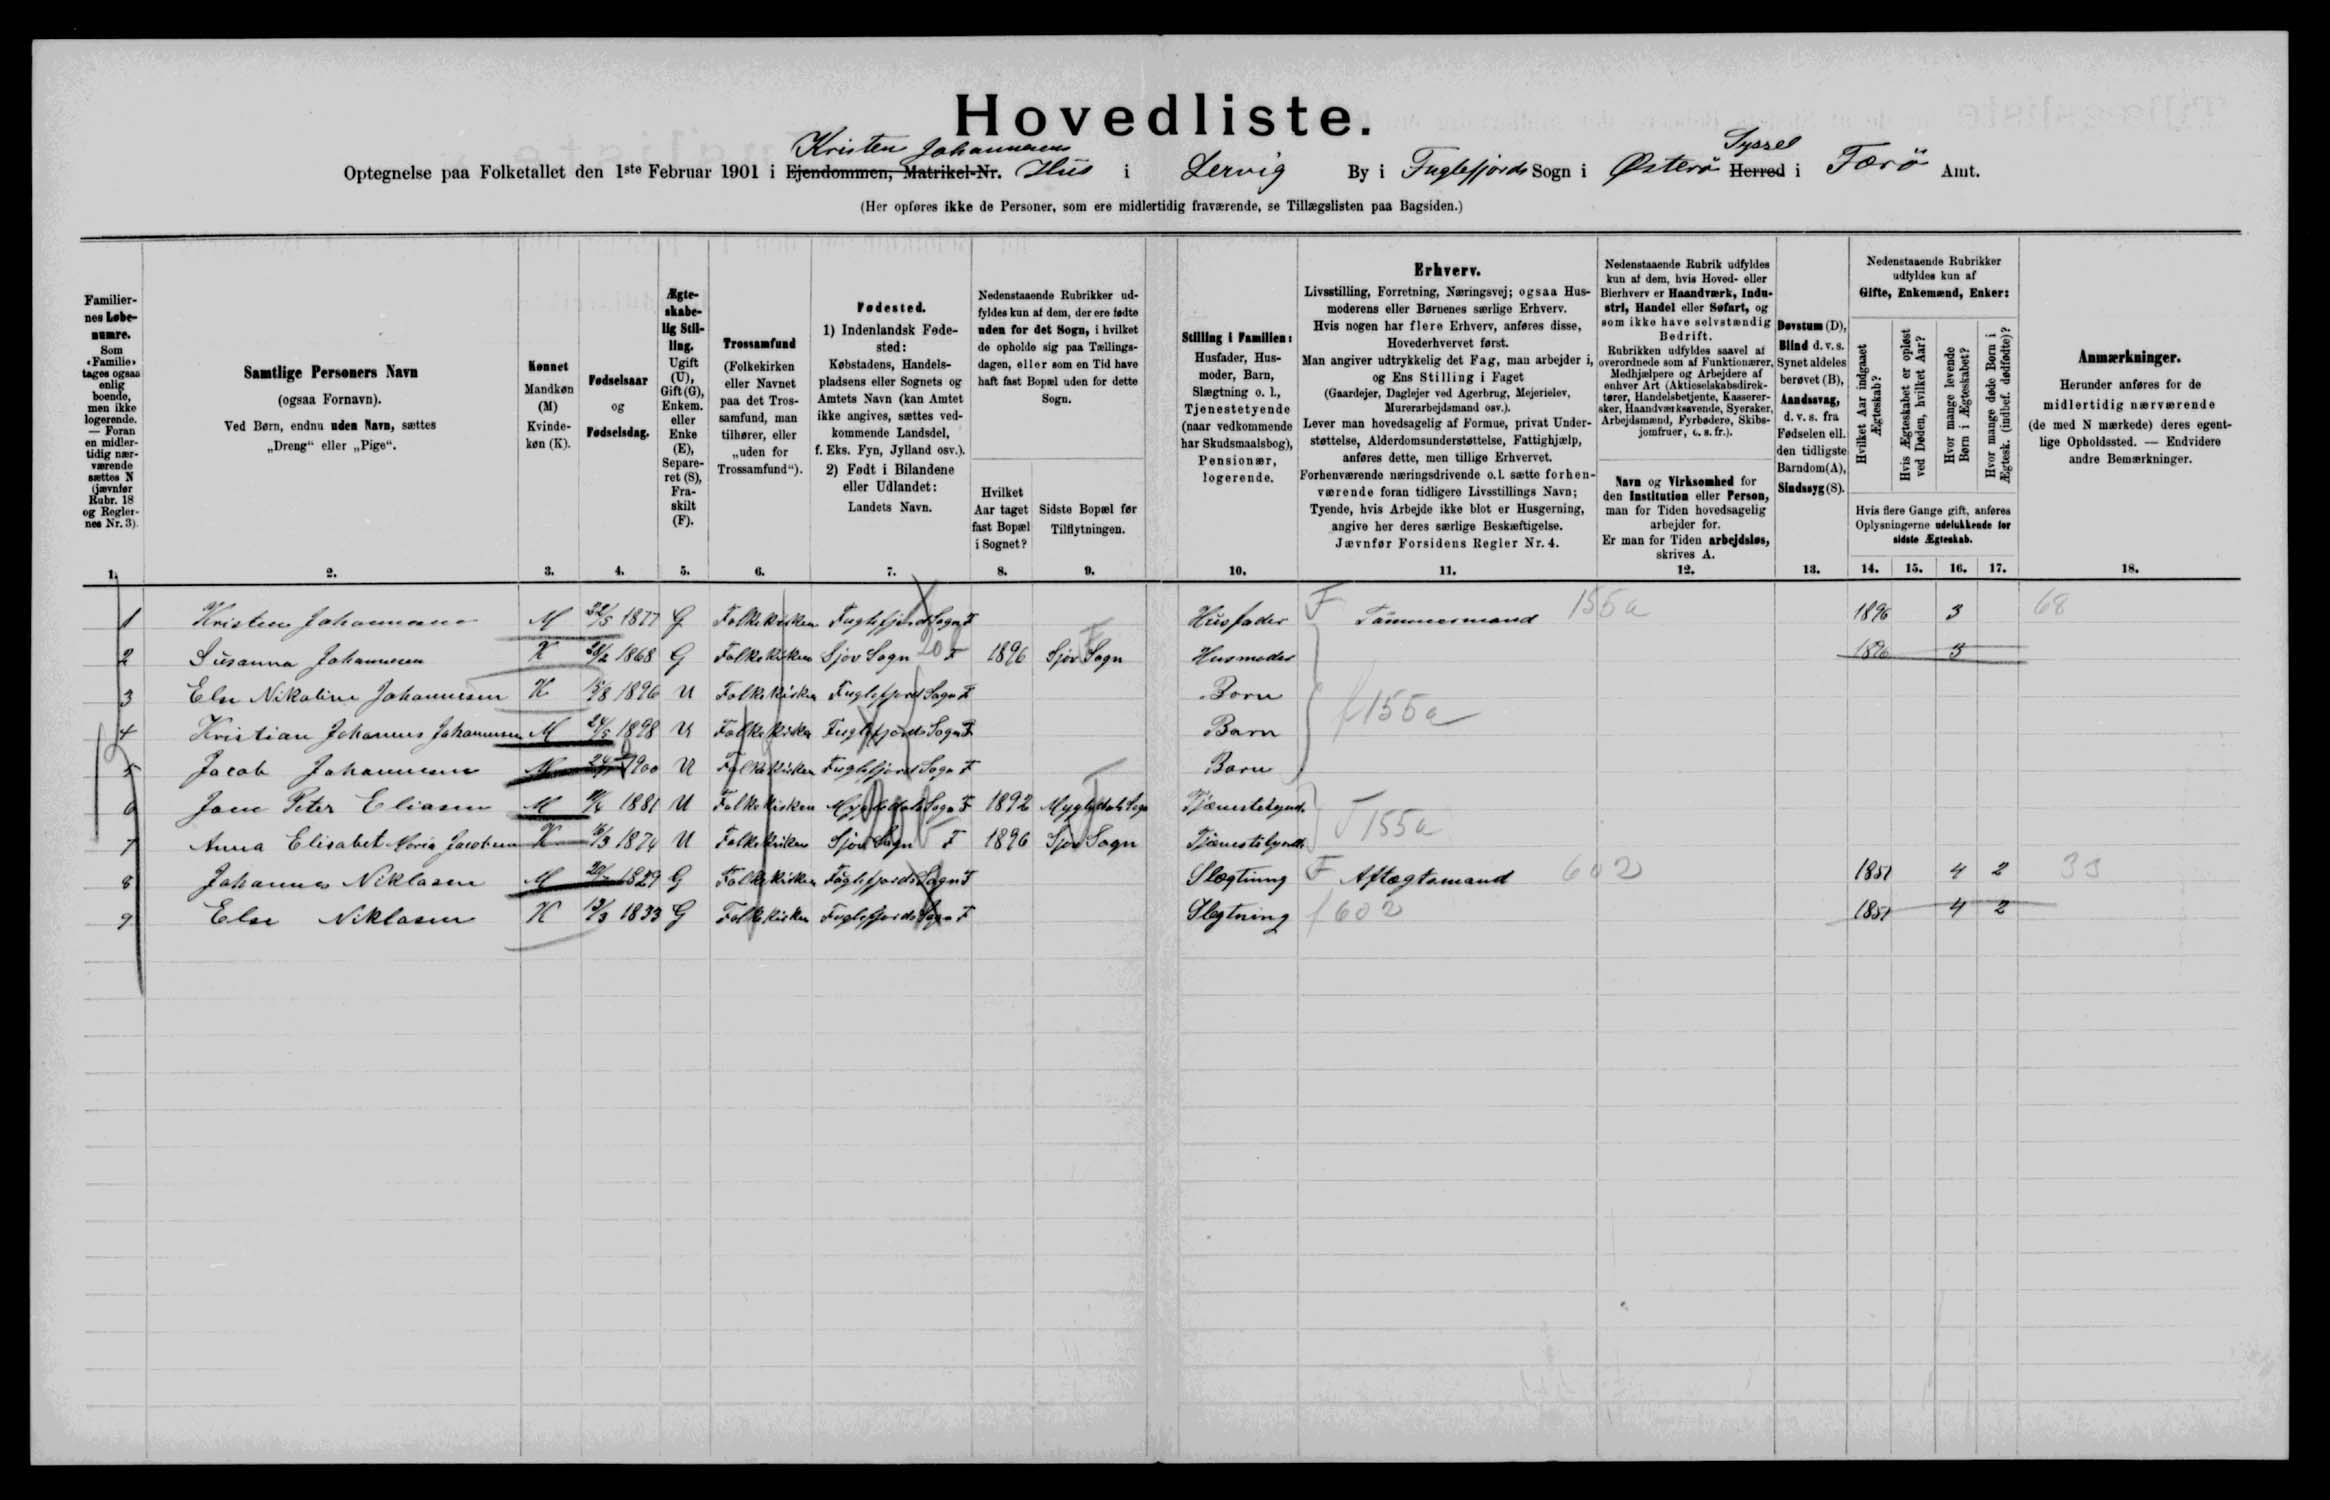 Hovedliste.
Kristen Johannesens
Syssel
Optegnelse paa Folketallet den 1ste Februar 1901 i Ejendommen, Matrikel-Nr. Hus i Lervig By i Fuglefjords Sogn i Østerø Herred i Færö Amt.
(Her opføres ikke de Personer, som ere midlertidig fraværende, se Tillægslisten paa Bagsiden.)
Familiernes Løbenumre. Som «Familie» tages ogsaa enlig boende, men ikke logerende. — Foran en midlertidig nærværende sættes N (jævnfør Rubr. 18 og Reglernes Nr. 3).
Samtlige Personers Navn (ogsaa Fornavn). Ved Børn, endnu uden Navn, sættes „Dreng“ eller „Pige“.
Kønnet Mandkøn (M) Kvindekøn (K).
Fødselsaar og Fødselsdag.
Ægteskabelig Stilling. Ugift (U), Gift (G), Enkem. eller Enke (E), Separeret (S), Fraskilt (F).
Trossamfund (Folkekirken eller Navnet paa det Trossamfund, man tilhører, eller „uden for Trossamfund“).
Fødested. 1) Indenlandsk Fødested: Købstadens, Handelspladsens eller Sognets og Amtets Navn (kan Amtet ikke angives, sættes vedkommende Landsdel, f. Eks. Fyn, Jylland osv.). 2) Født i Bilandene eller Udlandet: Landets Navn.
Nedenstaaende Rubrikker udfyldes kun af dem, der ere fødte uden for det Sogn, i hvilket de opholde sig paa Tællingsdagen, eller som en Tid have haft fast Bopæl uden for dette Sogn.
Hvilket Aar taget fast Bopæl i Sognet?
Sidste Bopæl før Tilflytningen.
Stilling i Familien: Husfader, Husmoder, Barn, Slægtning o. l., Tjenestetyende (naar vedkommende har Skudsmaalsbog), Pensionær, logerende.
Erhverv.
Livsstilling, Forretning, Næringsvej; ogsaa Husmoderens eller Børnenes særlige Erhverv.
Hvis nogen har flere Erhverv, anføres disse, Hovederhvervet først.
Man angiver udtrykkelig det Fag, man arbejder i, og Ens Stilling i Faget
(Gaardejer, Daglejer ved Agerbrug, Mejerielev, Murerarbejdsmand osv.).
Lever man hovedsagelig af Formue, privat Understøttelse, Alderdomsunderstøttelse, Fattighjælp, anføres dette, men tillige Erhvervet.
Forhenværende næringsdrivende o. l. sætte forhenværende foran tidligere Livsstillings Navn; Tyende, hvis Arbejde ikke blot er Husgerning, angive her deres særlige Beskæftigelse.
Jævnfør Forsidens Regler Nr. 4.
Nedenstaaende Rubrik udfyldes kun af dem, hvis Hoved- eller Bierhverv er Haandværk, Industri, Handel eller Søfart, og som ikke have selvstændig Bedrift.
Rubrikken udfyldes saavel af overordnede som af Funktionærer, Medhjælpere og Arbejdere af enhver Art (Aktieselskabsdirektører, Handelsbetjente, Kasserersker, Haandværkssvende, Syersker, Arbejdsmænd, Fyrbødere, Skibsjomfruer, o. s. fr.).
Navn og Virksomhed for den Institution eller Person, man for Tiden hovedsagelig arbejder for.
Er man for Tiden arbejdsløs, skrives A.
Døvstum (D), Blind d. v. s. Synet aldeles berøvet (B), Aandssvag, d. v. s. fra Fødselen ell. den tidligste Barndom (A), Sindssyg (S).
Nedenstaaende Rubrikker udfyldes kun af Gifte, Enkemænd, Enker:
Hvilket Aar indgaaet Ægteskab?
Hvis Ægteskabet er opløst ved Døden, hvilket Aar?
Hvor mange levende Børn i Ægteskabet?
Hvor mange døde Børn i Ægtesk. (indbef. dødfødte)?
Hvis flere Gange gift, anføres Oplysningerne udelukkende for sidste Ægteskab.
Anmærkninger.
Herunder anføres for de midlertidig nærværende (de med N mærkede) deres egentlige Opholdssted. — Endvidere andre Bemærkninger.
1. 2. 3. 4. 5. 6. 7. 8. 9. 10. 11. 12. 13. 14. 15. 16. 17. 18.
1 Kristen Johannesen M 22/5 1877 G Folkekirken Fuglefjords Sogn F Husfader F Tømmermand 155a 1896 3 68
2 Susanna Johannesen K 28/2 1868 G Folkekirken Sjov Sogn 20 F 1896 Sjov Sogn Husmoder 1896 3
3 Else Nikoline Johannesen K 15/8 1896 U Folkekirken Fuglefjords Sogn F Barn f 155a
4 Kristian Johannes Johannesen M 24/5 1898 U Folkekirken Fuglefjords Sogn F Barn
5 Jacob Johannesen M 1900 U Folkekirken Fuglefjords Sogn F Barn
6 Jone Peter Eliasen M 1881 U Folkekirken Sogn F 1892 Sogn Tjænestetyende
7 Anna Elisabet Maria Jacobsen K 16/3 1874 U Folkekirken Sjov Sogn F 1896 Sjov Sogn Tjænestetyende F 155a
8 Johannes Niklasen M 1829 G Folkekirken Fuglefjords Sogn F Slægtning F Aftægtsmand 602 1851 4 2 33
9 Else Niklasen K 13/3 1833 G Folkekirken Fuglefjords Sogn F Slegtning f 602 1851 4 2